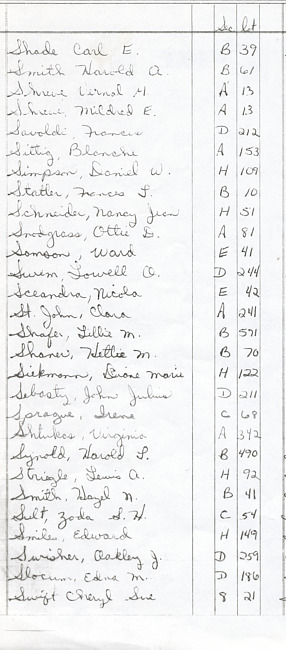 Sec lot
Shade Carl E. B 39
Smith Harold A. B 61
Shreve Vernol M A 13
Shreve, Mildred E. A 13
Savoldi, Frances D 212
Sittig, Blanche A 153
Simpson, Daniel W. H 109
Statler, Frances F. B 10
Schneider, Nancy Jean H 51
Snodgrass, Ottie D. A 81
Samson, Ward E 41
Swem Lowell O. D 244
Sceandra, Nicola E 42
St. John, Clara A 241
Shafer, Lillie M. B 571
Shaner, Hettie M. B 70
Siekmann, Diane Marie H 122
Sebasty, John Julius D 211
Sprague, Irene C 68
Shtukas, Virginia A 342
Synold, Harold F. B 490
Striegle, Lewis A. H 92
Smith, Hazel N. B 41
Sult, Zoda S. H. C 54
Smiley, Edward H 149
Swisher, Oakley J. D 259
Slocum, Edna M. D 186
Swift Cheryl Sue 8 21